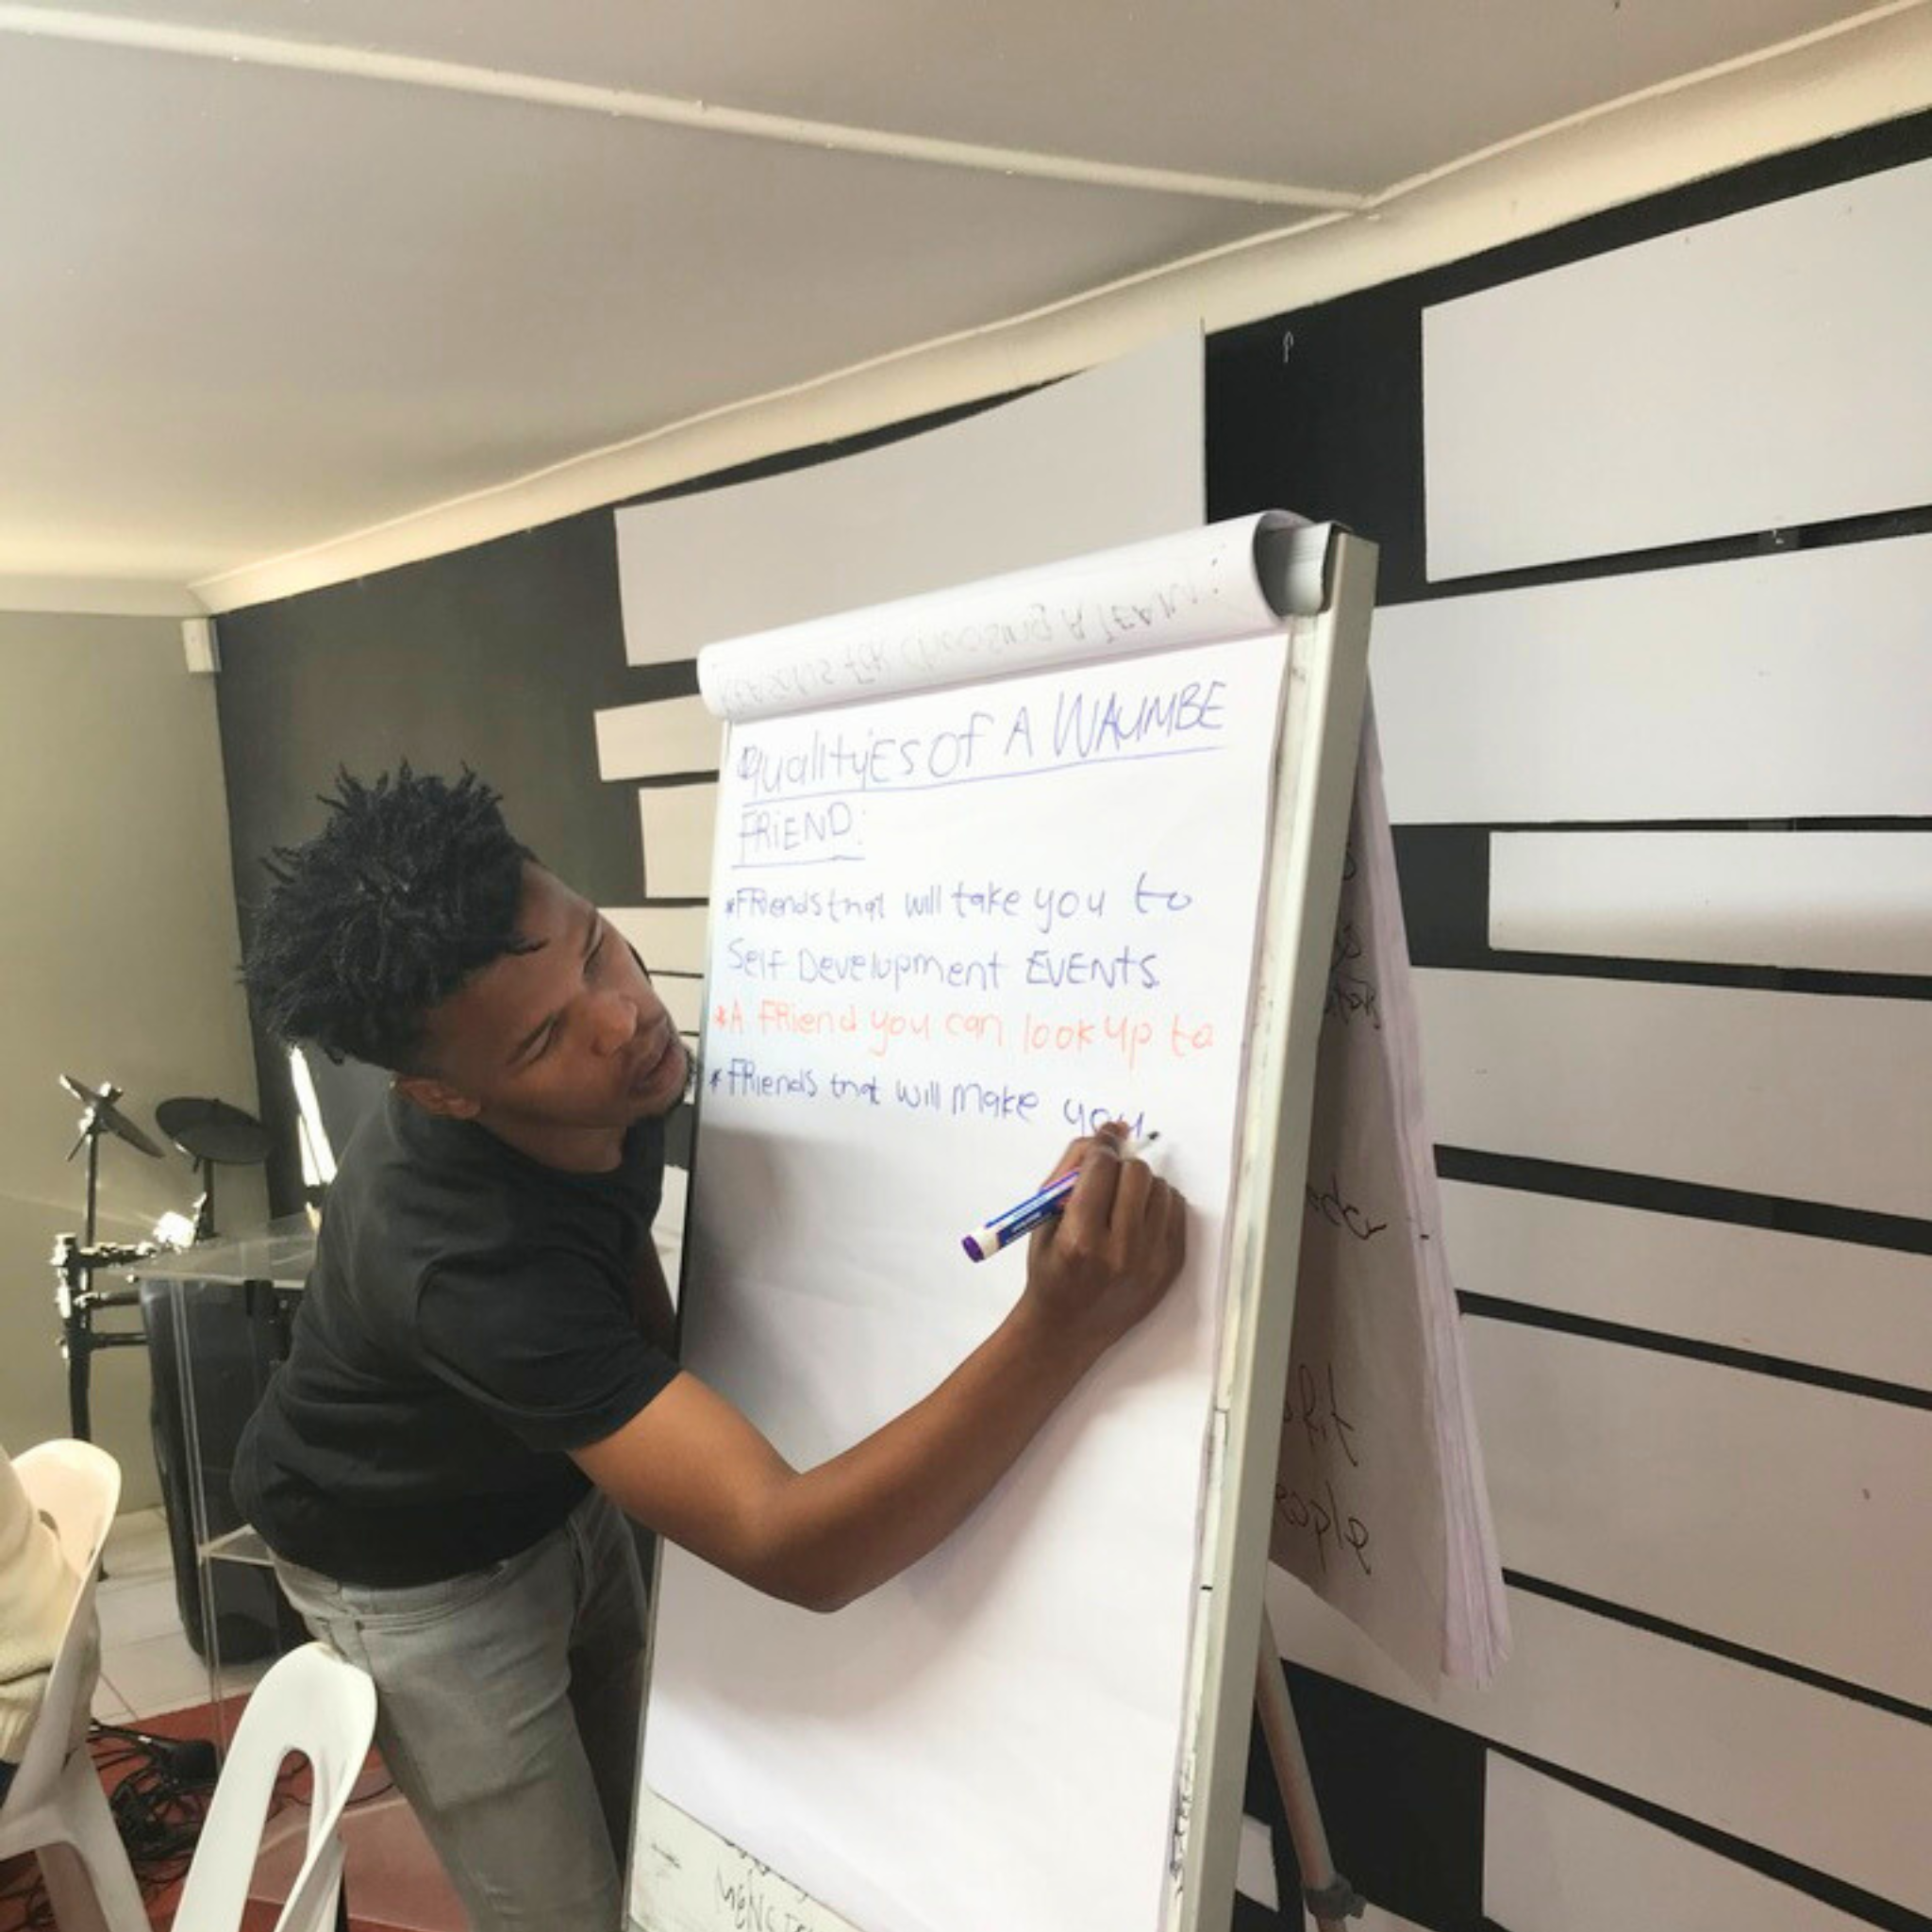 QualityES of A WAUMBE
FRiEND:
*FRiends that will take you to
Self Development EVENTS.
*A FRiend you can look up to
*FRiends that will Make you
REASONS FOR CHOOSING A TEAM :
eople